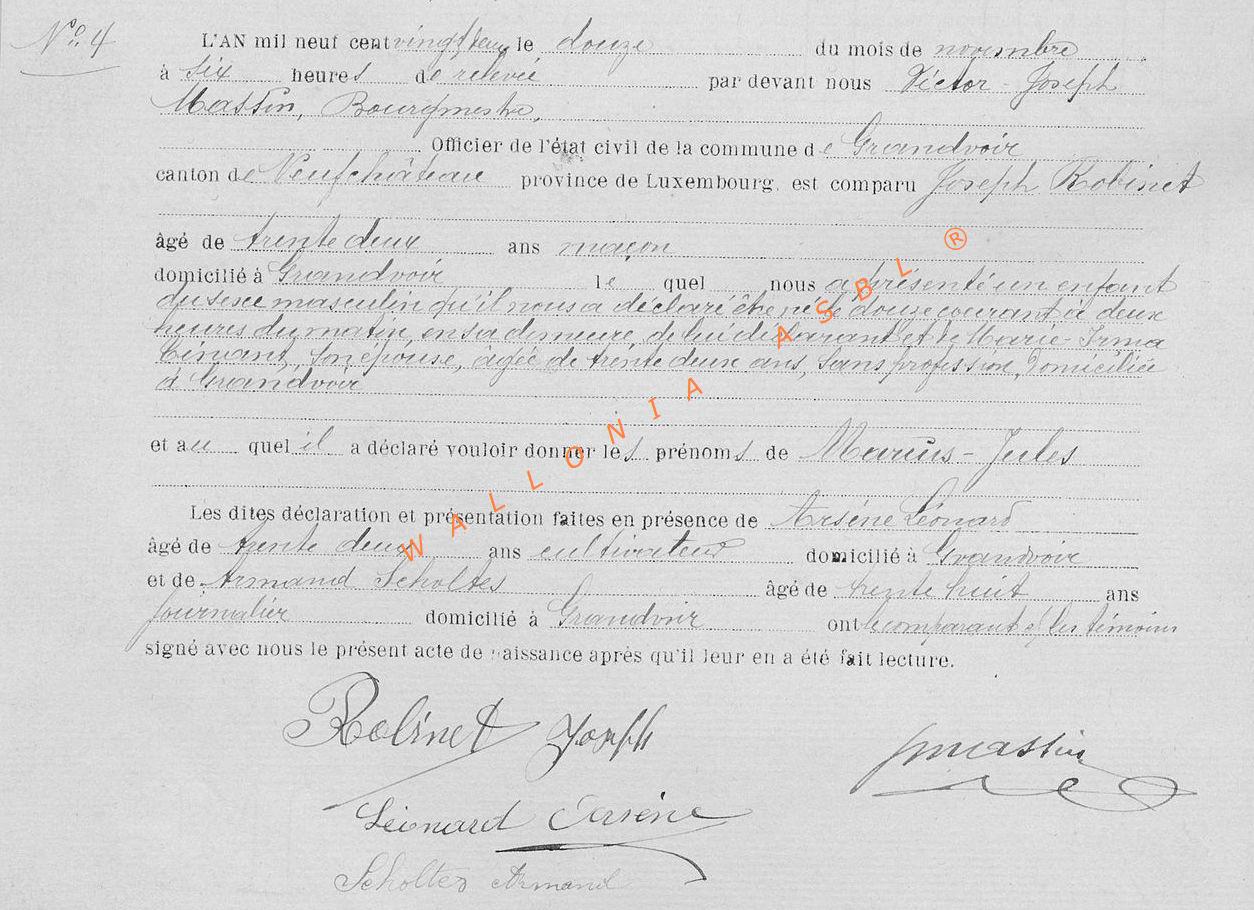 N° 4
L'AN mil neuf cent vingt deux le douze du mois de novembre
à six heures de relevée par devant nous Victor-Joseph
Massin, Bourgmestre,
Officier de l'état civil de la commune de Grandvoir
canton de Neufchâteau province de Luxembourg, est comparu Joseph Robinet
âgé de trente deux ans maçon
domicilié à Grandvoir le quel nous a présenté un enfant
du sexe masculin qu'il nous a déclaré être né le douze courant à deux
heures du matin, en sa demeure, de lui déclarant et de Marie-Irma
son épouse, âgée de trente deux ans, sans profession, domiciliée
à Grandvoir
et au quel il a déclaré vouloir donner les prénoms de Marius-Jules
Les dites déclaration et présentation faites en présence de Arsène Léonard
âgé de trente deux ans cultivateur domicilié à Grandvoir
et de Armand Scholtes âgé de trente huit ans
journalier domicilié à Grandvoir ont le comparant et les témoins
signé avec nous le présent acte de naissance après qu'il leur en a été fait lecture.
Robinet Joseph
Jmassin
Léonard Arsène
Scholtes Armand
WALLONIA ASBL ®